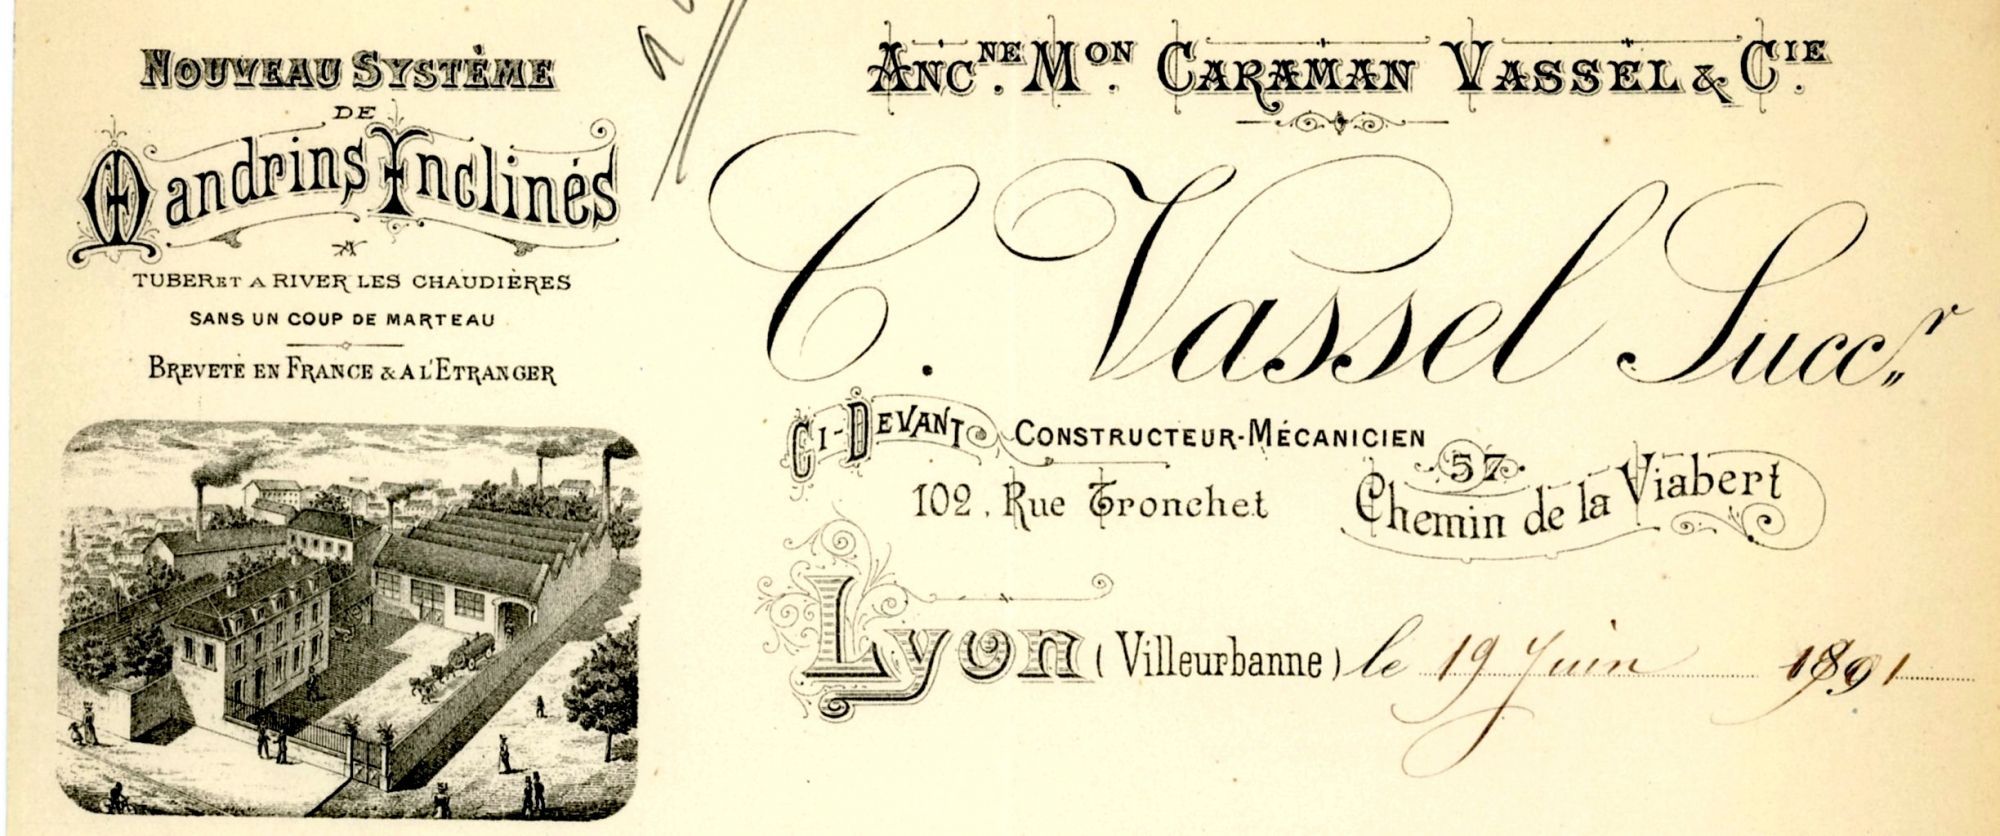 NOUVEAU SYSTÈME
DE
Mandrins Inclinés
A
TUBER ET A RIVER LES CHAUDIÈRES
SANS UN COUP DE MARTEAU
BREVETÉ EN FRANCE & A L'ETRANGER
ANC.NE MON. CARAMAN VASSEL & CIE.
C. Vassel Succr.
CI-DEVANT CONSTRUCTEUR-MÉCANICIEN
102, Rue Tronchet
57
Chemin de la Viabert
Lyon (Villeurbanne) le 19 Juin 1891